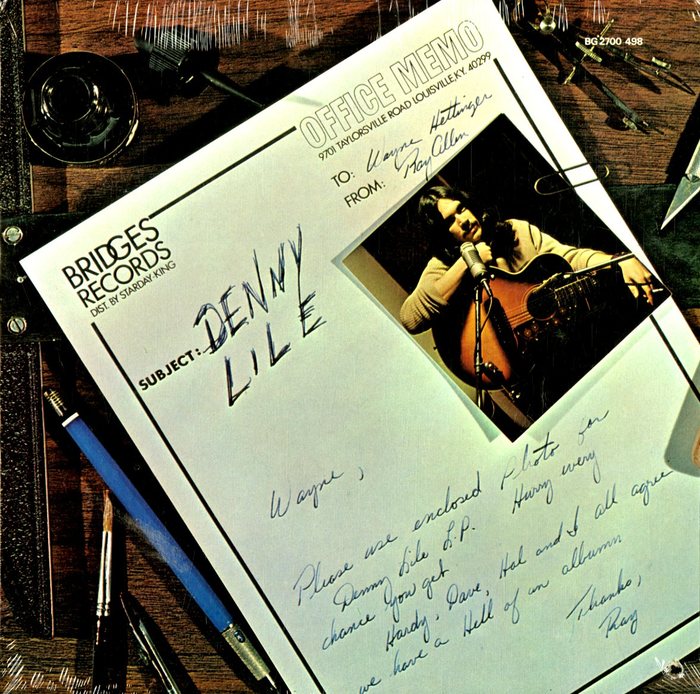 BG 2700 498
OFFICE MEMO
9701 TAYLORSVILLE ROAD LOUISVILLE, KY. 40299
TO: Wayne Hettinger
FROM: Ray Allen
BRIDGES
RECORDS
DIST. BY STARDAY-KING
SUBJECT: DENNY
LILE
Wayne,
Please use enclosed Photo for
Denny Lile L.P. Hurry every
chance you get
Hardy, Dave, Hal and I all agree
we have a Hell of an albumn
Thanks,
Ray